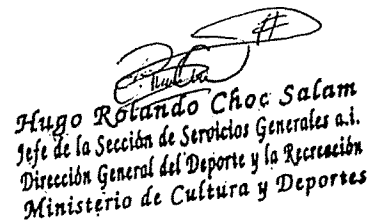 Hugo Rolando Choc Salam
Jefe de la Sección de Servicios Generales a.i.
Dirección General del Deporte y la Recreación
Ministerio de Cultura y Deportes